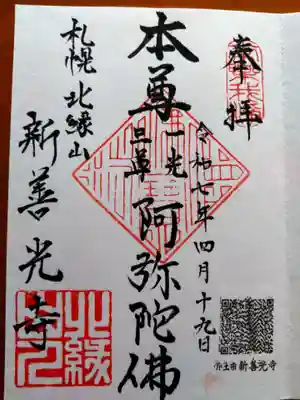 奉拝
令和七年四月十九日
本尊
一光
三尊
阿弥陀佛
札幌北縁山
新善光寺
北縁
浄土宗 新善光寺